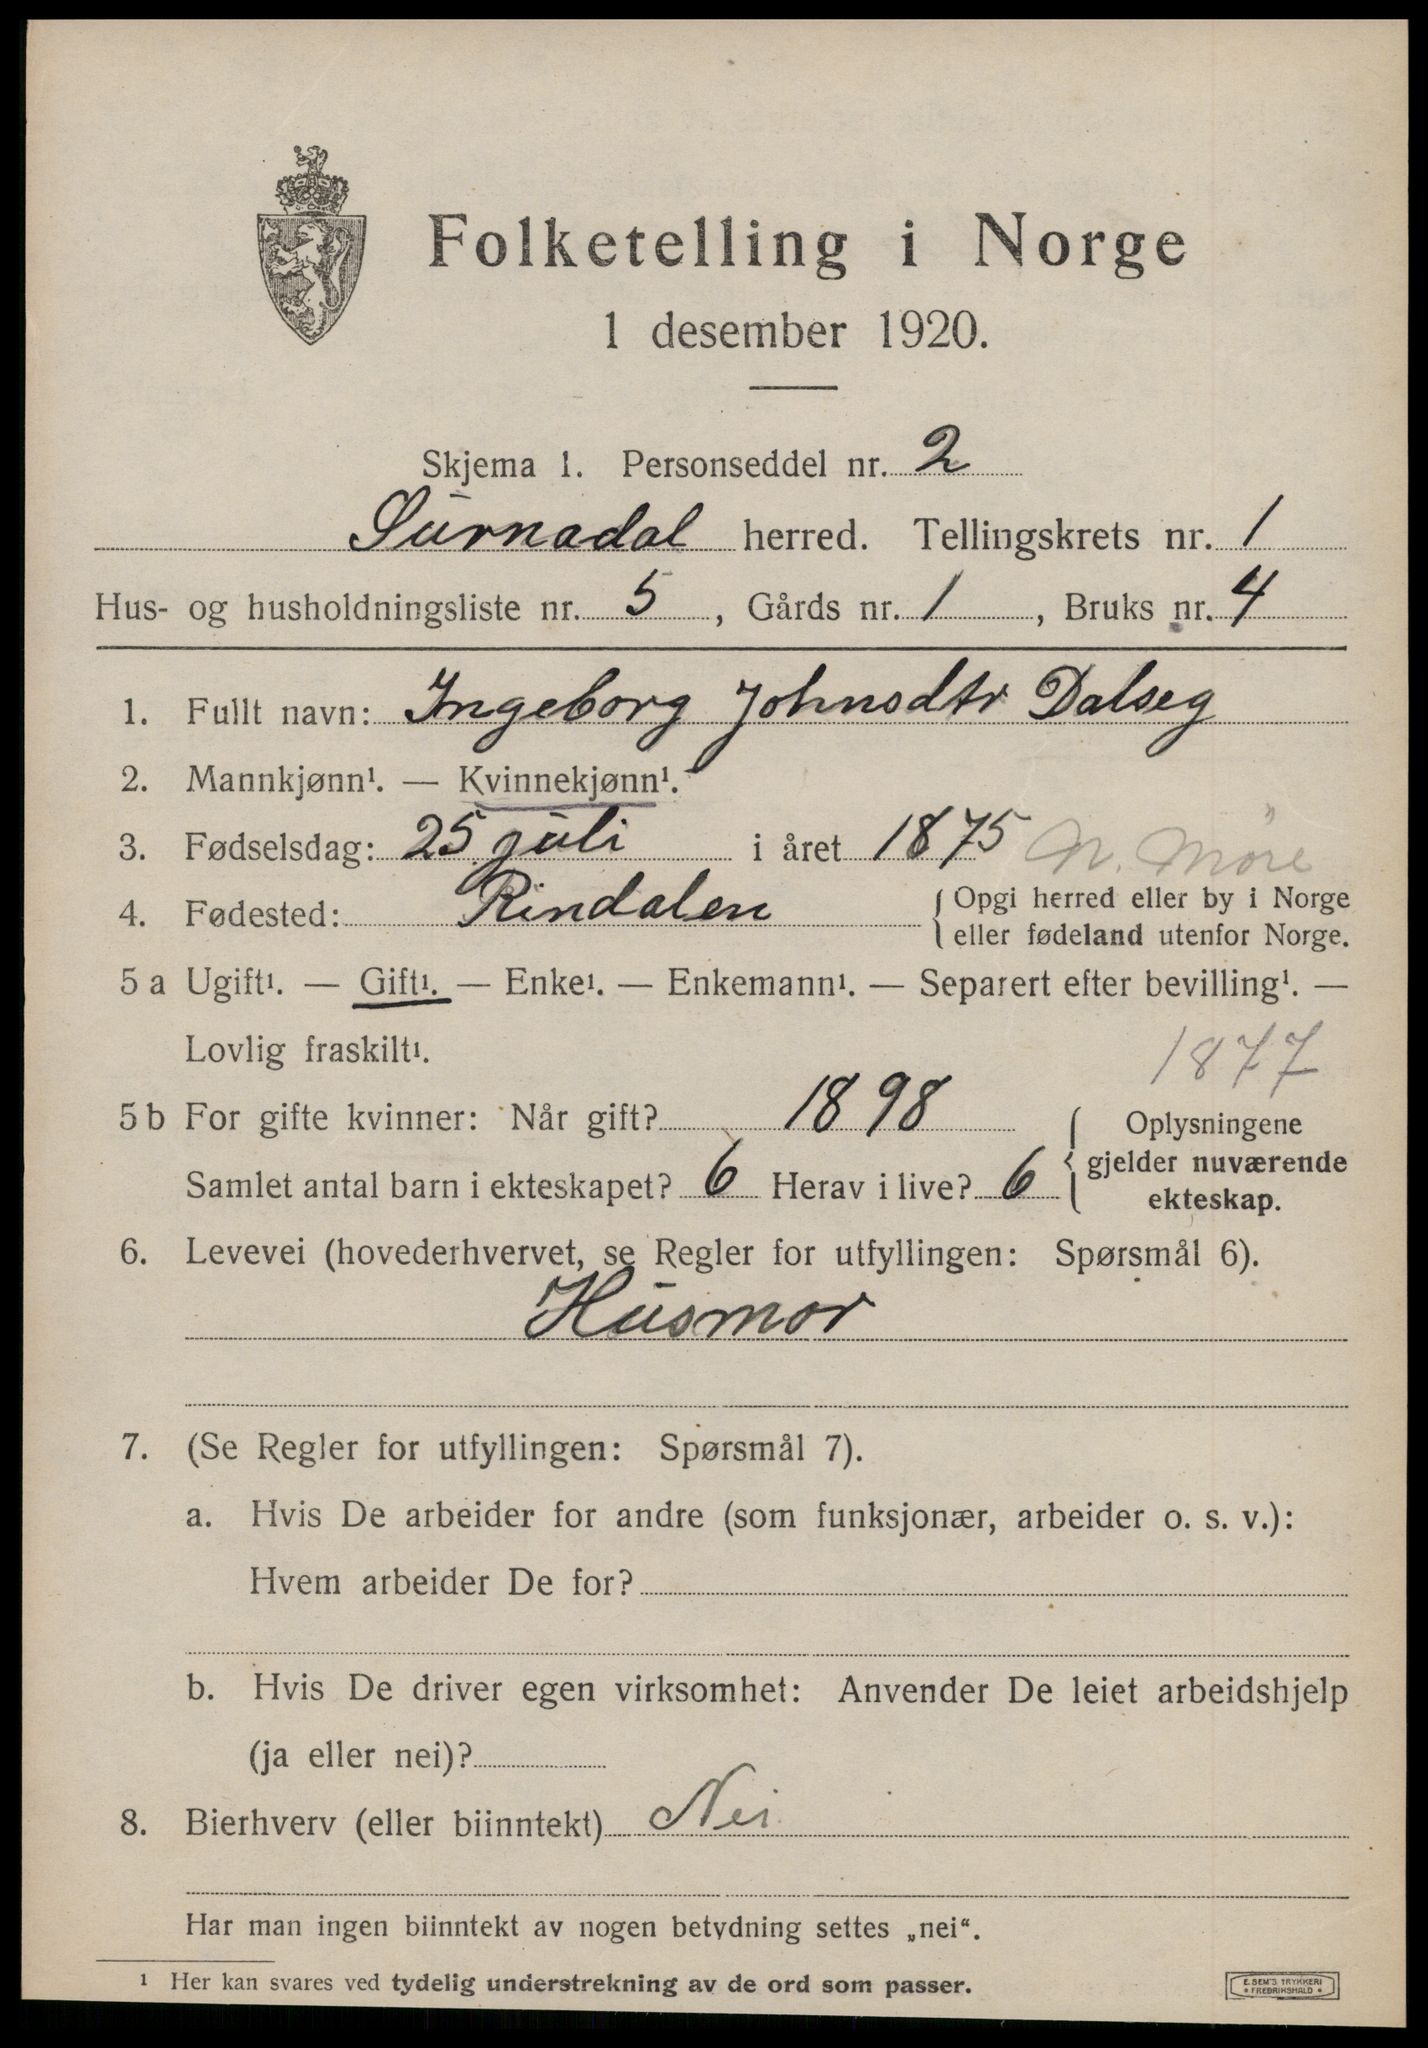 Folketelling i Norge
1 desember 1920.
Skjema 1. Personseddel nr. 2
Surnadal herred. Tellingskrets nr. 1
Hus- og husholdningsliste nr. 5, Gårds nr. 1, Bruks nr. 4
1. Fullt navn: Ingeborg Johnsdtr Dalseg
2. Mannkjønn¹. — Kvinnekjønn¹.
3. Fødselsdag: 25 juli i året 1875 N. Møre
4. Fødested: Rindalen { Opgi herred eller by i Norge
eller fødeland utenfor Norge.
5 a Ugift¹. — Gift¹. — Enke¹. — Enkemann¹. — Separert efter bevilling¹. —
Lovlig fraskilt¹. 1877
5 b For gifte kvinner: Når gift? 1898
Samlet antal barn i ekteskapet? 6 Herav i live? 6
{ Oplysningene
gjelder nuværende
ekteskap.
6. Levevei (hovederhvervet, se Regler for utfyllingen: Spørsmål 6).
Husmor
7. (Se Regler for utfyllingen: Spørsmål 7).
a. Hvis De arbeider for andre (som funksjonær, arbeider o. s. v.):
Hvem arbeider De for?
b. Hvis De driver egen virksomhet: Anvender De leiet arbeidshjelp
(ja eller nei)?
8. Bierhverv (eller biinntekt) Nei
Har man ingen biinntekt av nogen betydning settes „nei“.
¹ Her kan svares ved tydelig understrekning av de ord som passer.
E. SEM'S TRYKKERI
* FREDRIKSHALD *